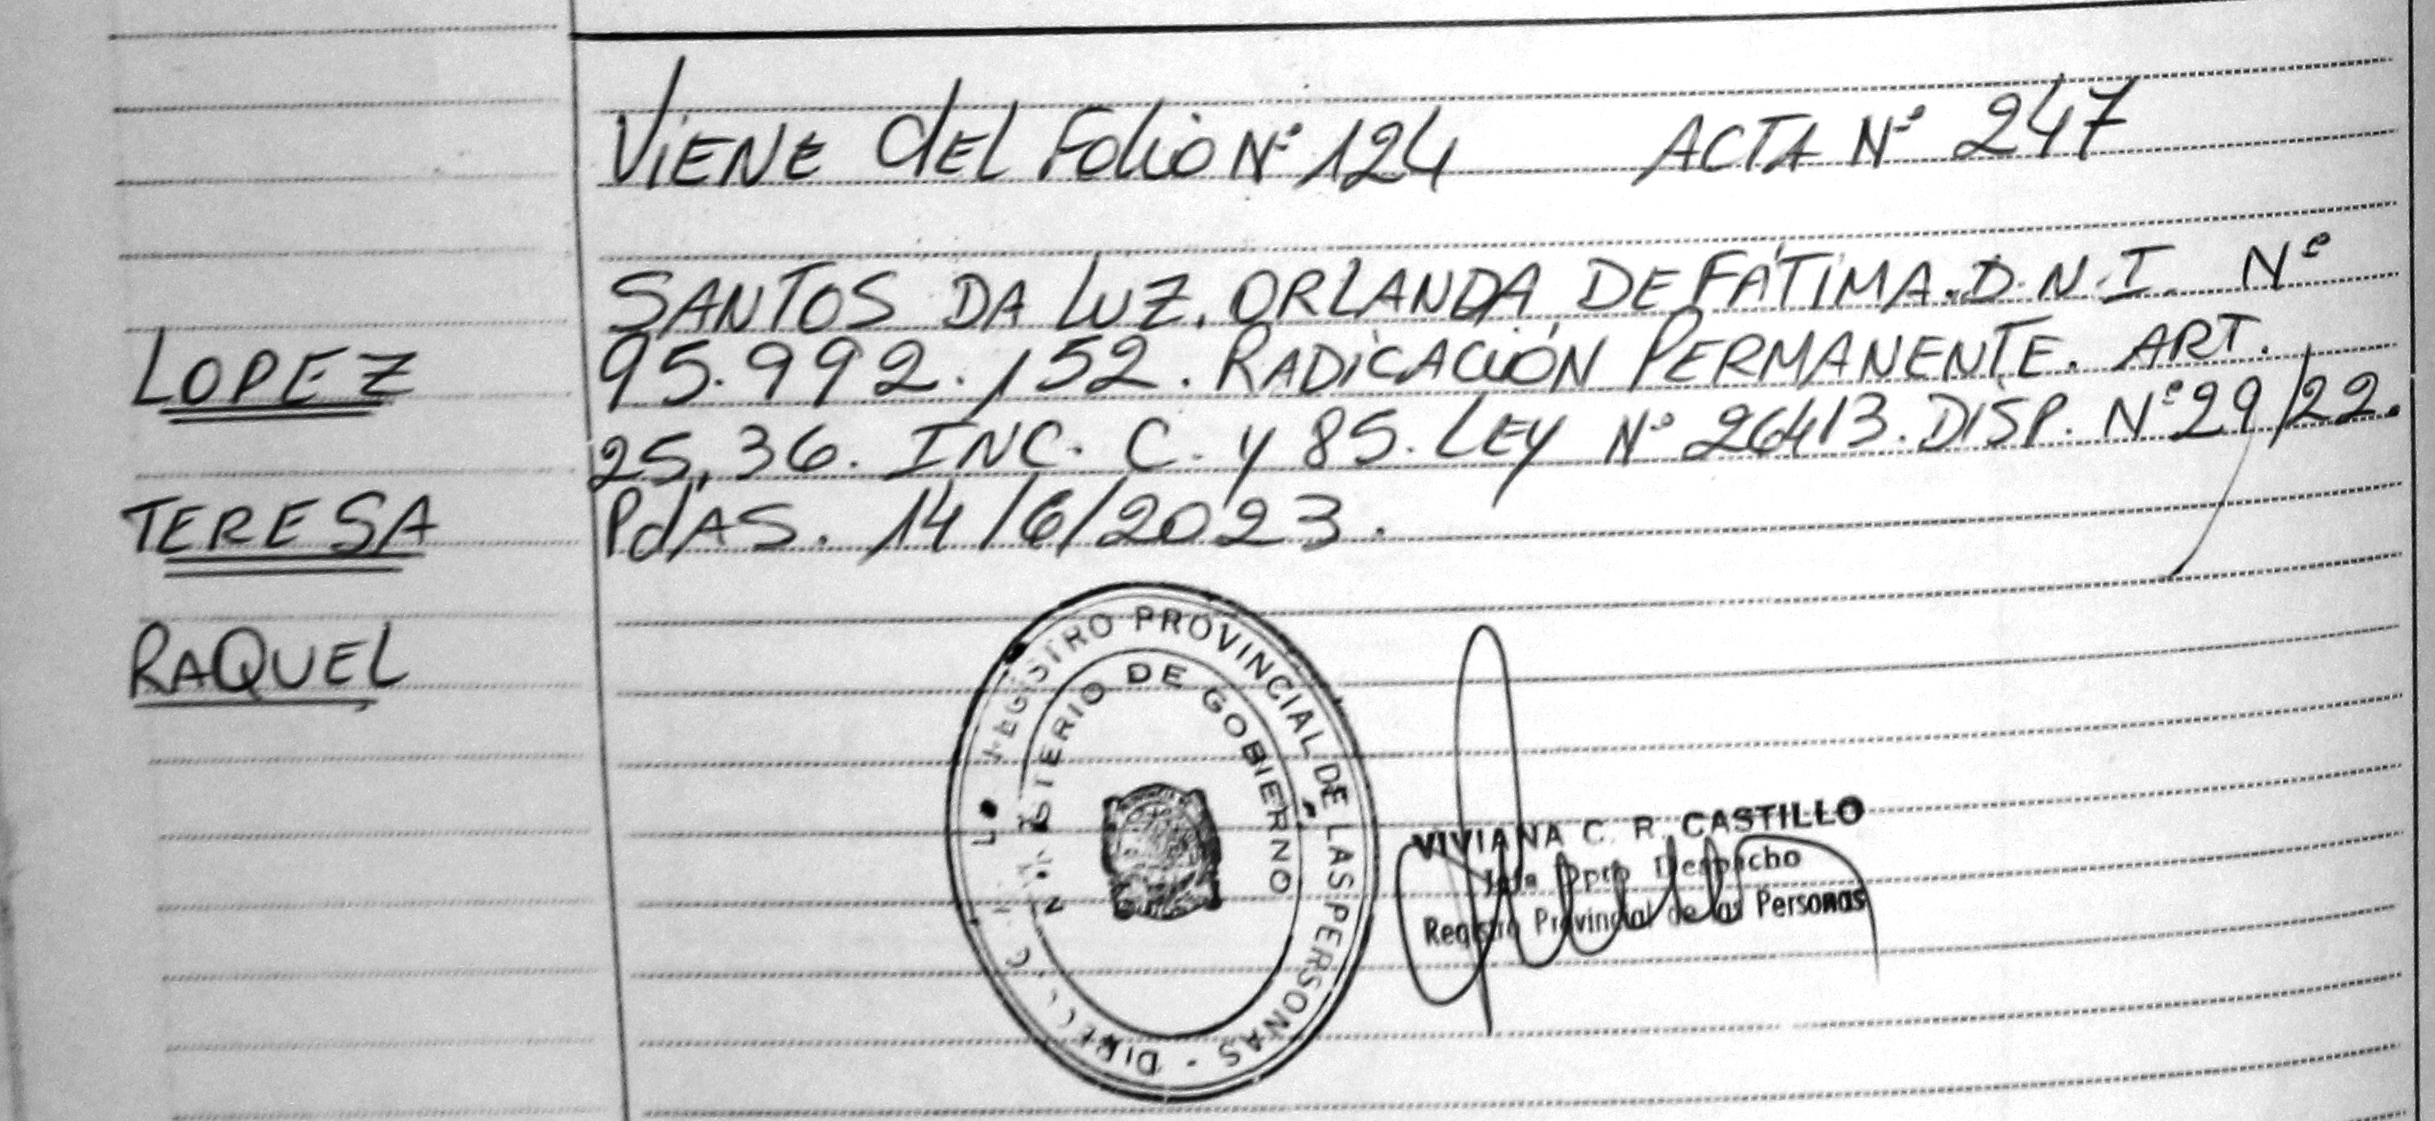 VIENE DEL FOLIO Nº 124 ACTA Nº 247
SANTOS DA LUZ. ORLANDA DE FÁTIMA. D.N.I. Nº
95.992.152. RADICACIÓN PERMANENTE. ART.
25, 36. INC. C. y 85. LEY Nº 26413. DISP. Nº 29/22.
PdAS. 14/6/2023.
LOPEZ
TERESA
RAQUEL
REGISTRO PROVINCIAL DE LAS PERSONAS -
MINISTERIO DE GOBIERNO
VIVIANA C. R. CASTILLO
Jefa Dpto Despacho
Registro Provincial de las Personas